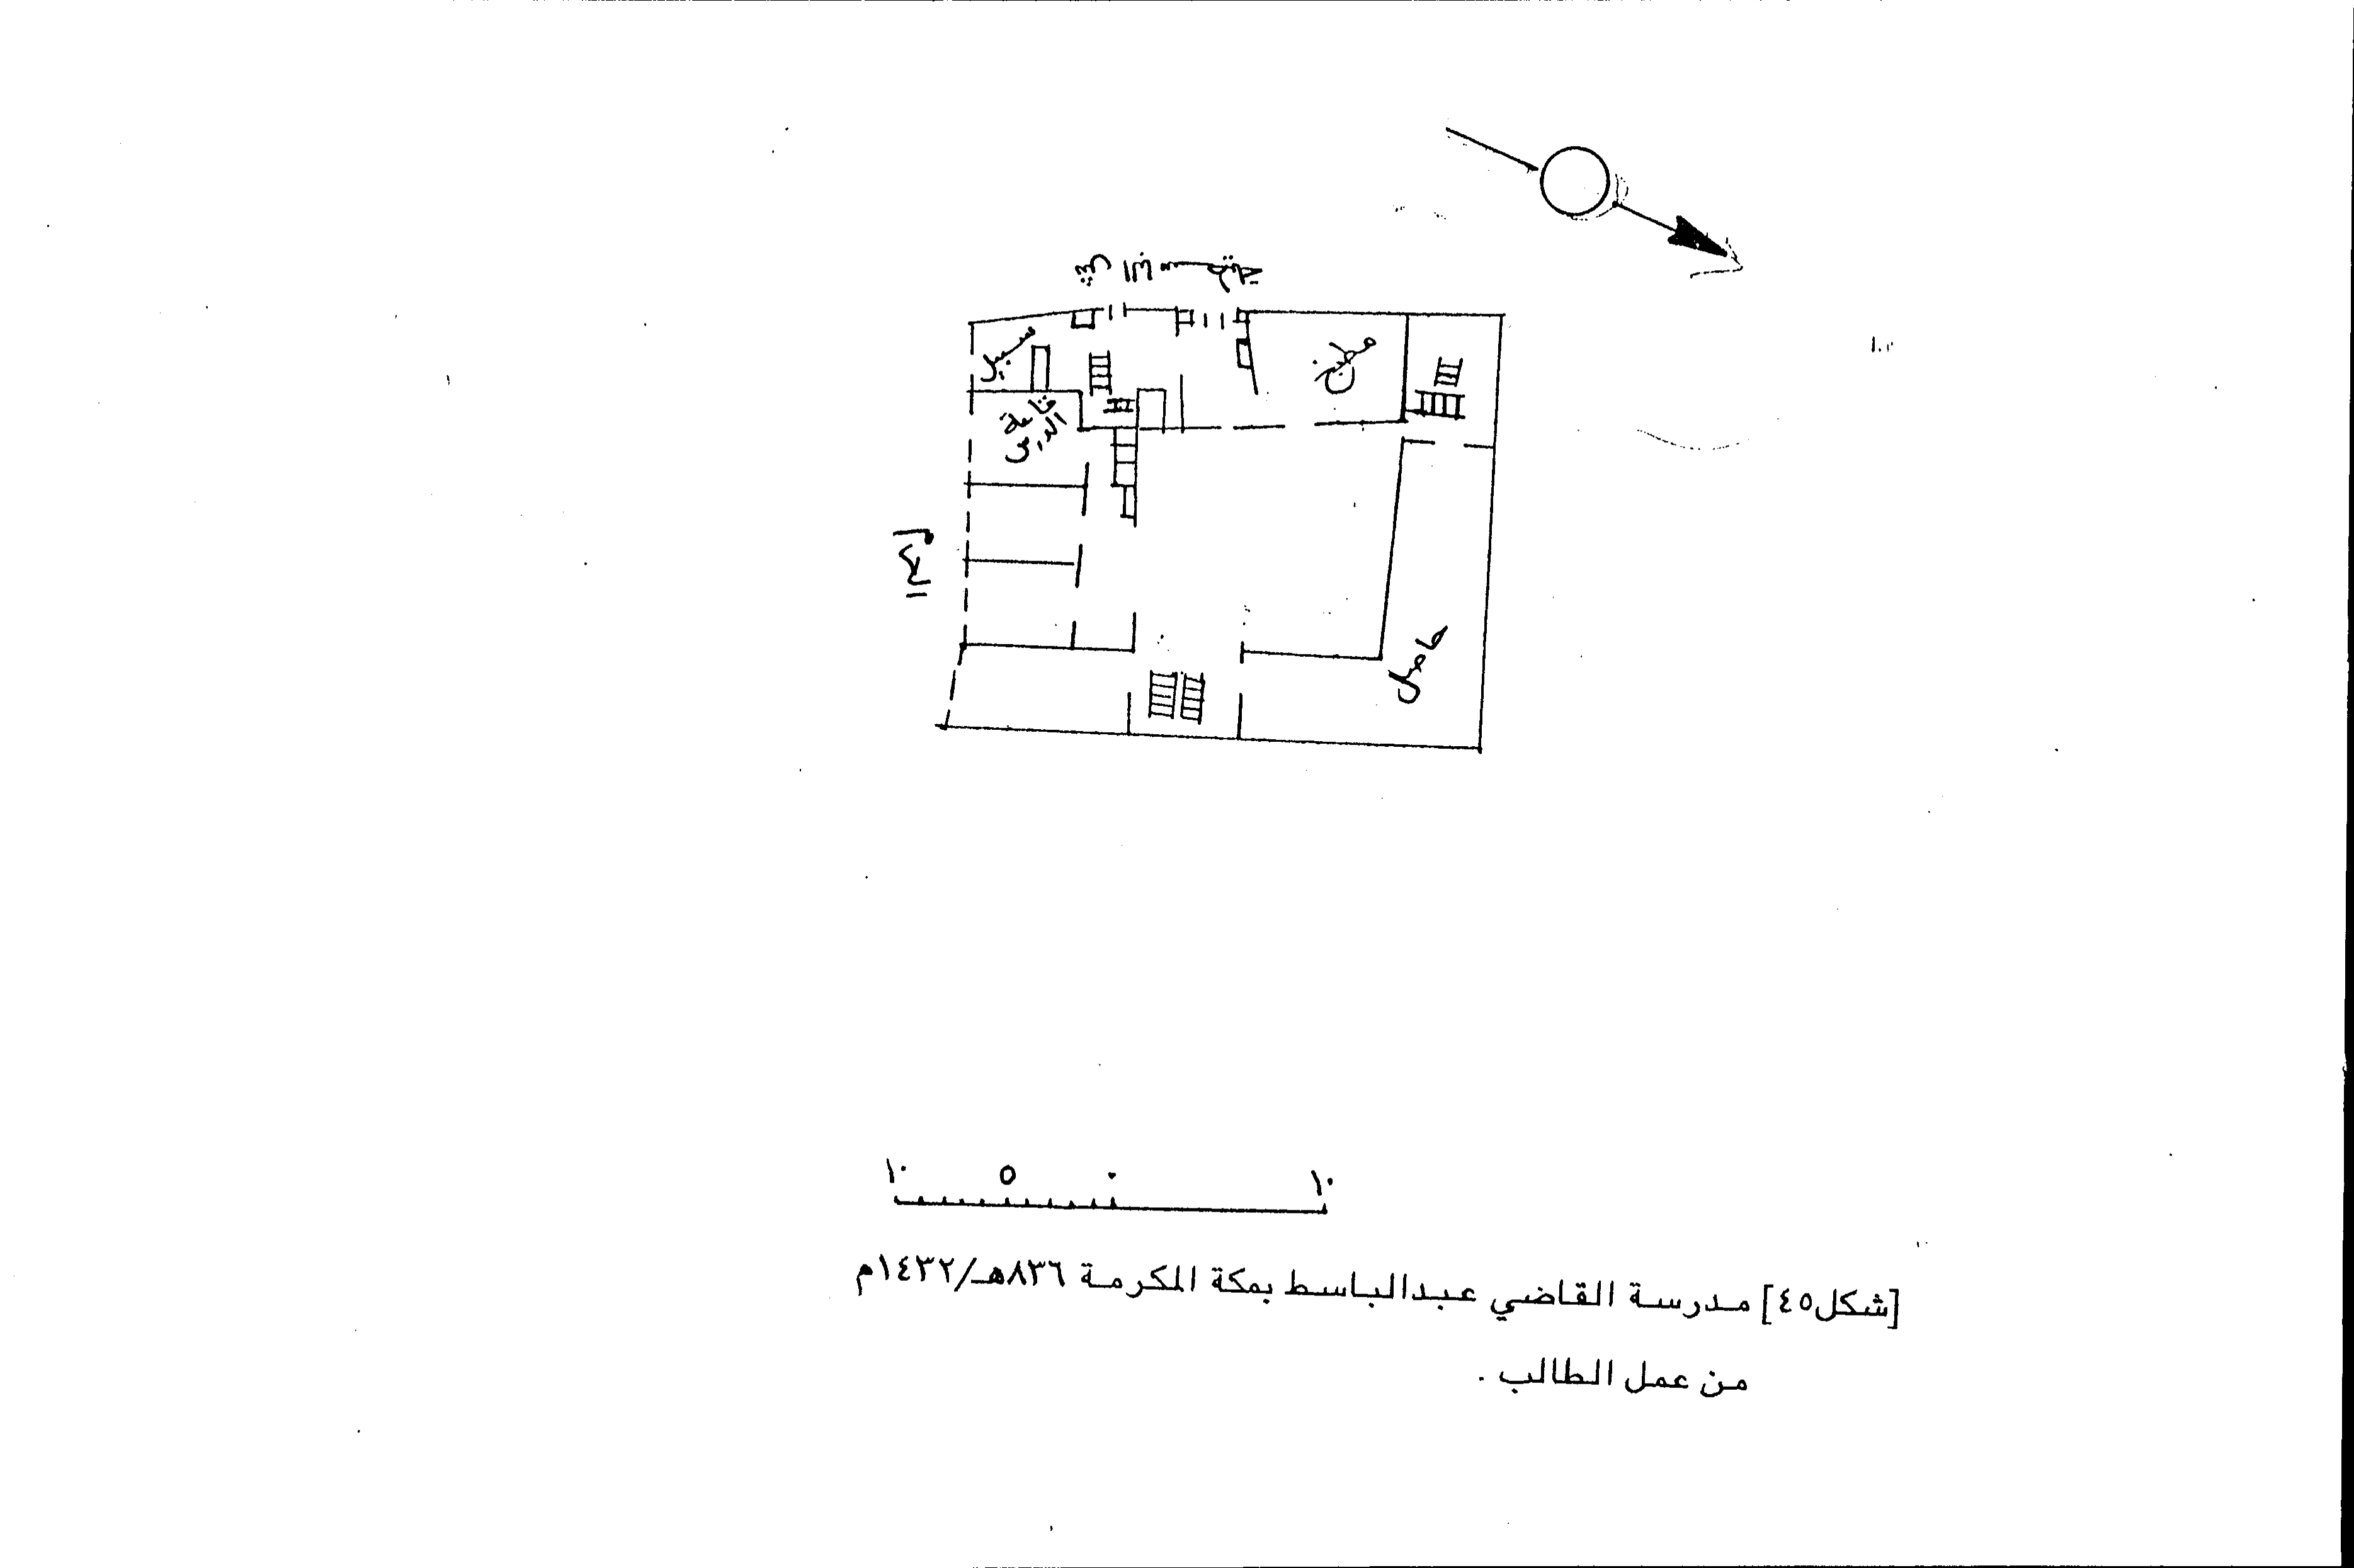 سبيل
قاعة
الدرس
مطبخ
حاصل
١٠ ٥ ٠ ١٠
[شكل٤٥] مدرسة القاضي عبدالباسط بمكة المكرمة ٨٣٦هـ/١٤٣٢م
من عمل الطالب .